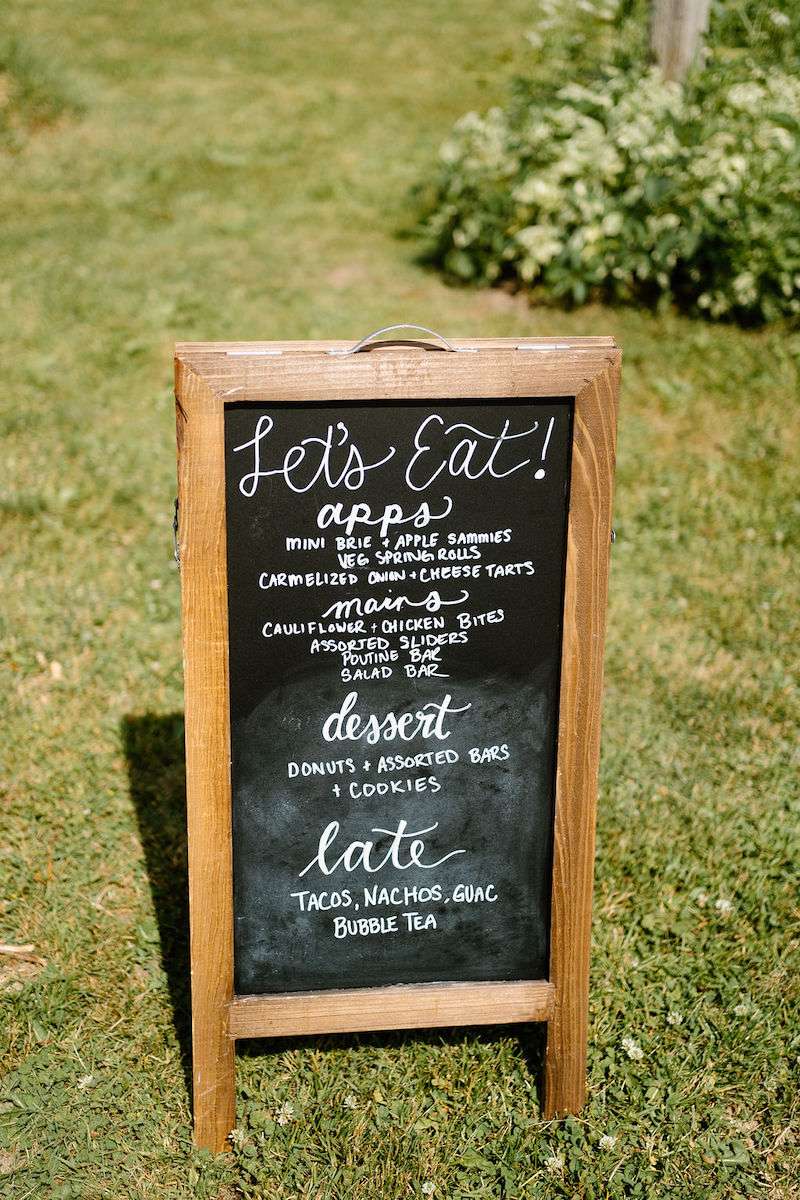 Let's Eat!
apps
MINI BRIE + APPLE SAMMIES
VEG SPRING ROLLS
CARMELIZED ONION + CHEESE TARTS
mains
CAULIFLOWER + CHICKEN BITES
ASSORTED SLIDERS
POUTINE BAR
SALAD BAR
dessert
DONUTS + ASSORTED BARS
+ COOKIES
late
TACOS, NACHOS, GUAC
BUBBLE TEA